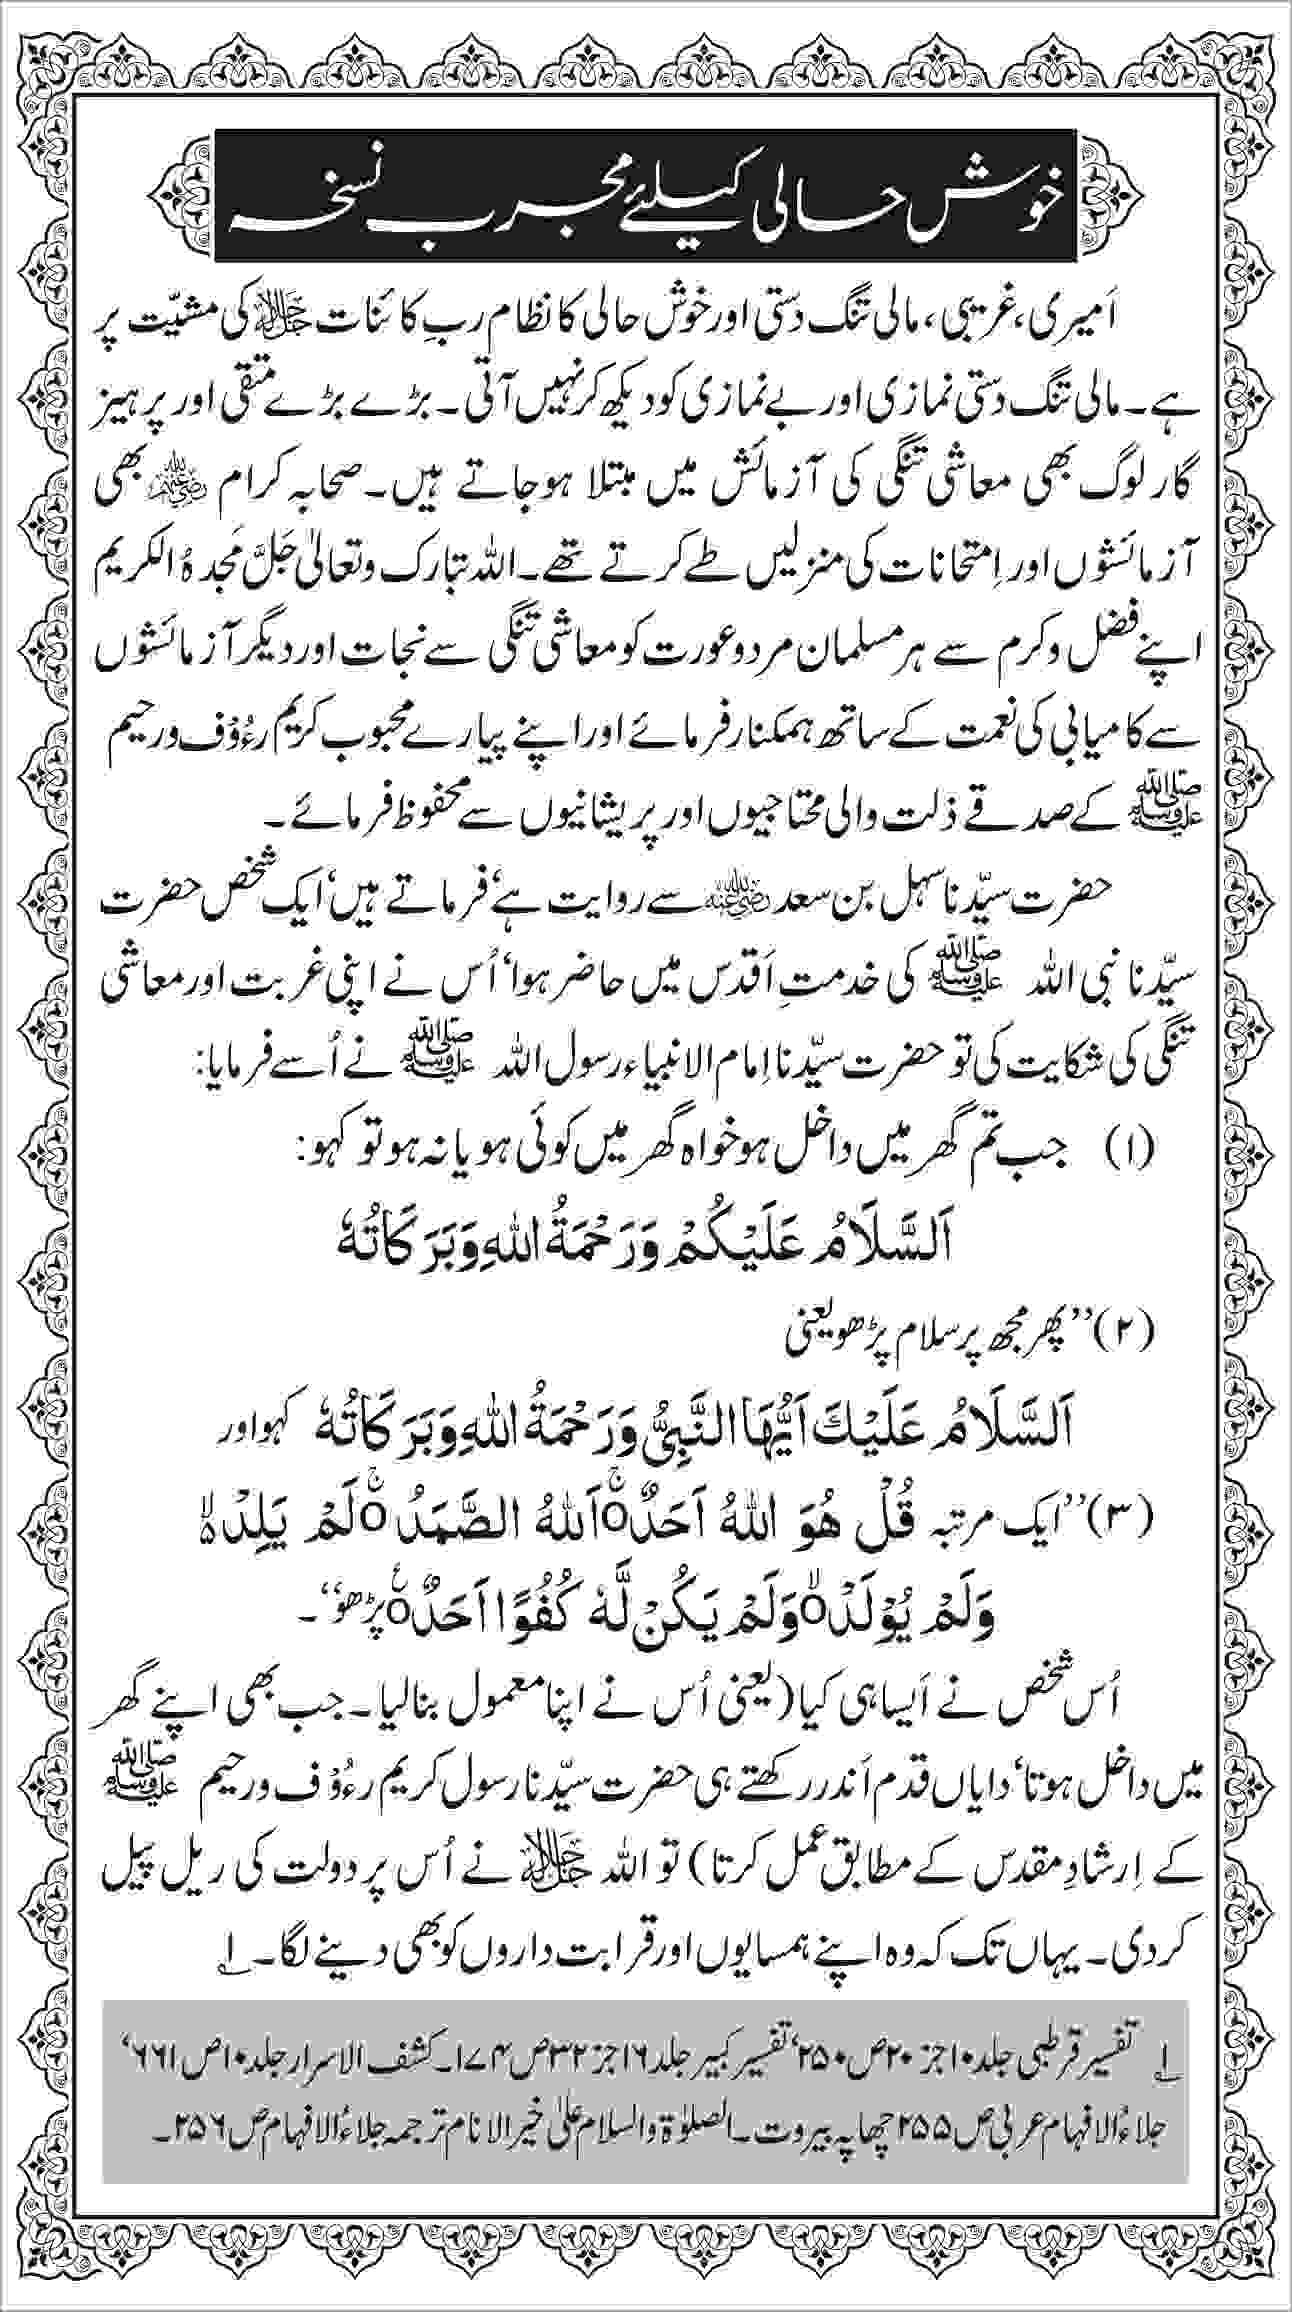 خوش حالی کیلئے مجرب نسخہ
اَمیری، غریبی، مالی تنگ دستی اور خوش حالی کا نظام ربِ کائنات جل جلالہ کی مشیّت پر
ہے۔ مالی تنگ دستی نمازی اور بے نمازی کو دیکھ کر نہیں آتی۔ بڑے بڑے متقی اور پرہیز
گار لوگ بھی معاشی تنگی کی آزمائش میں مبتلا ہوجاتے ہیں۔ صحابہ کرام رضی اللہ عنہم بھی
آزمائشوں اور اِمتحانات کی منزلیں طے کرتے تھے۔ اللہ تبارک وتعالیٰ جَلَّ مَجدہُ الکریم
اپنے فضل وکرم سے ہر مسلمان مرد وعورت کو معاشی تنگی سے نجات اور دیگر آزمائشوں
سے کامیابی کی نعمت کے ساتھ ہمکنار فرمائے اور اپنے پیارے محبوب کریم رءُوْف ورحیم
ﷺ کے صدقے ذلت والی محتاجیوں اور پریشانیوں سے محفوظ فرمائے۔
حضرت سیّدنا سہل بن سعد رضی اللہ عنہ سے روایت ہے‘ فرماتے ہیں‘ ایک شخص حضرت
سیّدنا نبی اللہ ﷺ کی خدمتِ اَقدس میں حاضر ہوا‘ اُس نے اپنی غربت اور معاشی
تنگی کی شکایت کی تو حضرت سیّدنا اِمام الانبیاء رسول اللہ ﷺ نے اُسے فرمایا:
(۱) جب تم گھر میں داخل ہو خواہ گھر میں کوئی ہو یا نہ ہو تو کہو:
اَلسَّلَامُ عَلَيْكُمْ وَرَحْمَةُ اللهِ وَبَرَكَاتُهٗ
(۲) ’’پھر مجھ پر سلام پڑھو یعنی
اَلسَّلَامُ عَلَيْكَ اَيُّهَا النَّبِيُّ وَرَحْمَةُ اللهِ وَبَرَكَاتُهٗ کہو اور
(۳) ’’ایک مرتبہ قُلْ هُوَ اللهُ اَحَدٌ ۚ اَللهُ الصَّمَدُ ۚ لَمْ يَلِدْ ۙ
وَلَمْ يُوْلَدْ ۙ وَلَمْ يَكُنْ لَّهٗ كُفُوًا اَحَدٌ ۧ پڑھو‘‘۔
اُس شخص نے اَیسا ہی کیا (یعنی اُس نے اپنا معمول بنالیا۔ جب بھی اپنے گھر
میں داخل ہوتا‘ دایاں قدم اَندر رکھتے ہی حضرت سیّدنا رسول کریم رءُوْف ورحیم ﷺ
کے اِرشادِ مقدس کے مطابق عمل کرتا) تو اللہ جل جلالہ نے اُس پر دولت کی ریل پیل
کردی۔ یہاں تک کہ وہ اپنے ہمسایوں اور قرابت داروں کو بھی دینے لگا۔ ۱
۱ تفسیر قرطبی جلد ۱۰ جز ۲۰ ص ۲۵۰‘ تفسیر کبیر جلد ۱۶ جز ۳۲ ص ۱۷۴۔ کشف الاسرار جلد ۱۰ ص ۶۶۱‘
جلاءُ الافہام عربی ص ۲۵۵ چھاپہ بیروت۔ الصلوٰۃ والسلام علیٰ خیر الانام ترجمہ جلاءُ الافہام ص ۲۵۶۔